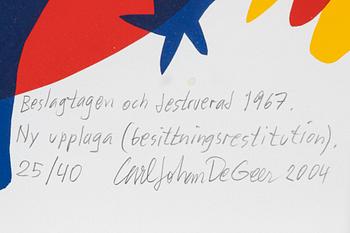 Beslagtagen och destruerad 1967.
Ny upplaga (besittningsrestitution).
25/40 Carl Johan De Geer 2004